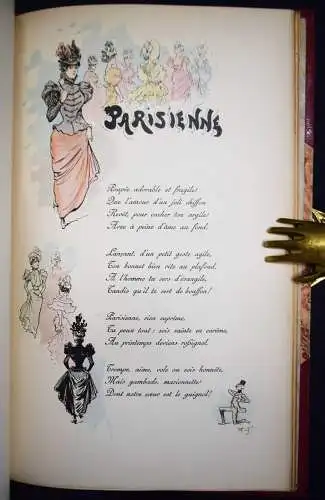 PARISIENNE
Poupée adorable et fragile!
Que l'amour d'un joli chiffon
Revêt, pour cacher ton argile!
Avec à peine d'âme au fond.
Lançant, d'un petit geste agile,
Ton bonnet bien vite au plafond,
A l'homme tu sers d'évangile,
Tandis qu'il te sert de bouffon!
Parisienne, rien suprême,
Tu peux tout: sois sainte en carême,
Au printemps deviens rossignol.
Trompe, aime, vole ou sois honnête,
Mais gambade, marionnette!
Dont notre cœur est le guignol!